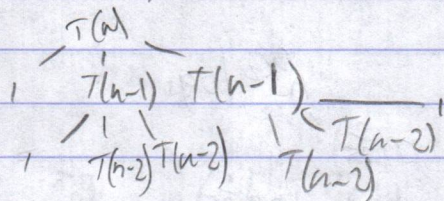 T(n)
1 T(n-1) T(n-1) 1
1 T(n-2) T(n-2) T(n-2) T(n-2)